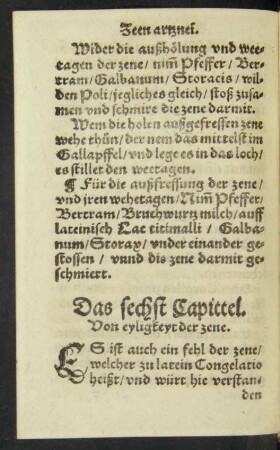 Zeen artznei.
Wider die außhölung vnd wee-
tagen der zene / nim̃ Pfeffer / Ber-
tram / Galbanum / Storacis / wil-
den Poli / jegliches gleich / stoß zusa-
men vnd schmire die zene darmit.
Wem die holen außgefressen zene
wehe thůn / der nem das mittelst im
Gallapffel / vnd lege es in das loch /
es stillet den weetagen.
¶ Für die außfressung der zene /
vnd jren wehetagen / Nim̃ Pfeffer /
Bertram / Bruchwurtz milch / auff
lateinisch Lac titimalli / Galba-
num / Storax / vnder einander ge-
stossen / vnnd die zene darmit ge-
schmiert.
Das sechst Capittel.
Von eyligkeyt der zene.
ES ist auch ein fehl der zene /
welcher zu latein Congelatio
heißt / vnd würt hie verstan-
den